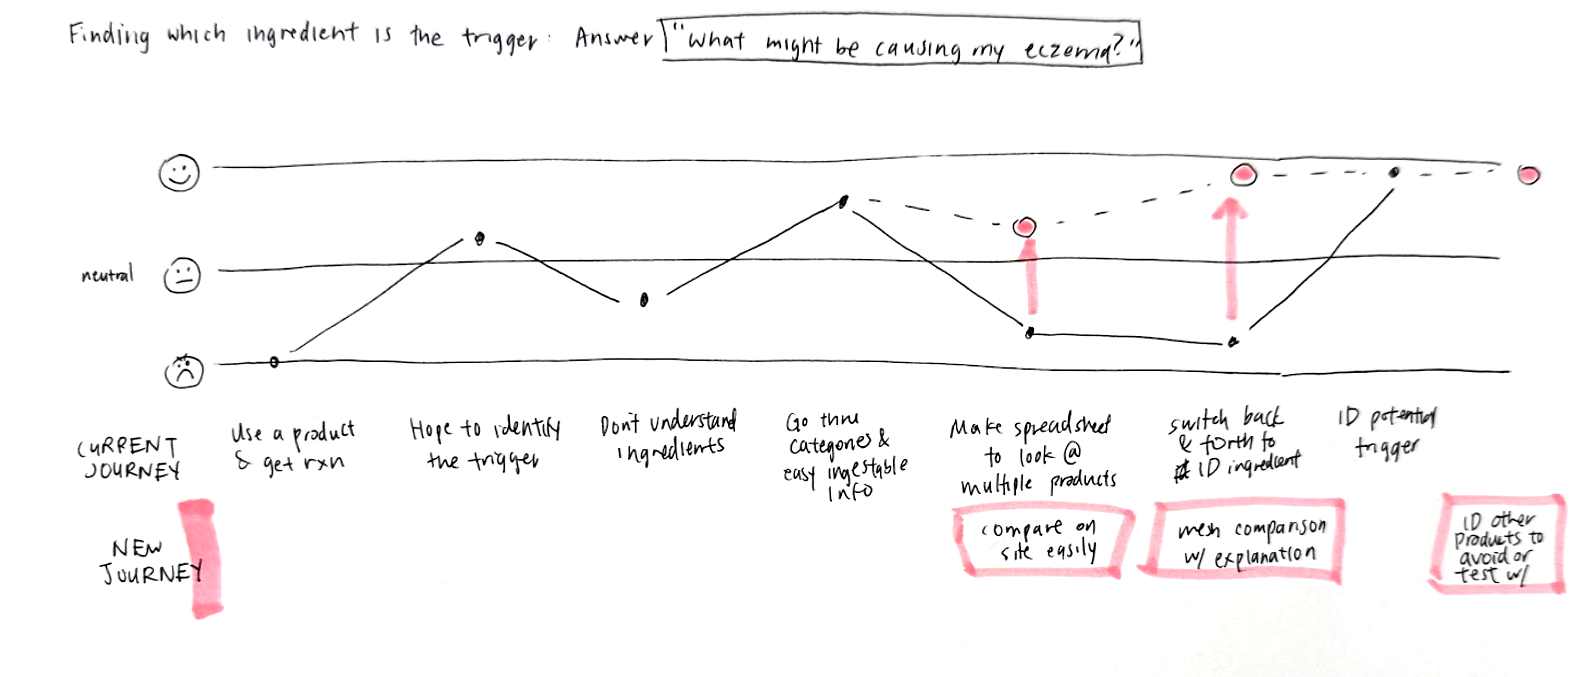 Finding which ingredient is the trigger: Answer "What might be causing my eczema?"
neutral
CURRENT
JOURNEY
Use a product
& get rxn
Hope to identify
the trigger
Don't understand
ingredients
Go thru
categories &
easy ingestable
info
Make spreadsheet
to look @
multiple products
switch back
& forth to
ID ingredient
ID potential
trigger
NEW
JOURNEY
compare on
site easily
mesh comparison
w/ explanation
ID other
Products to
avoid or
test w/